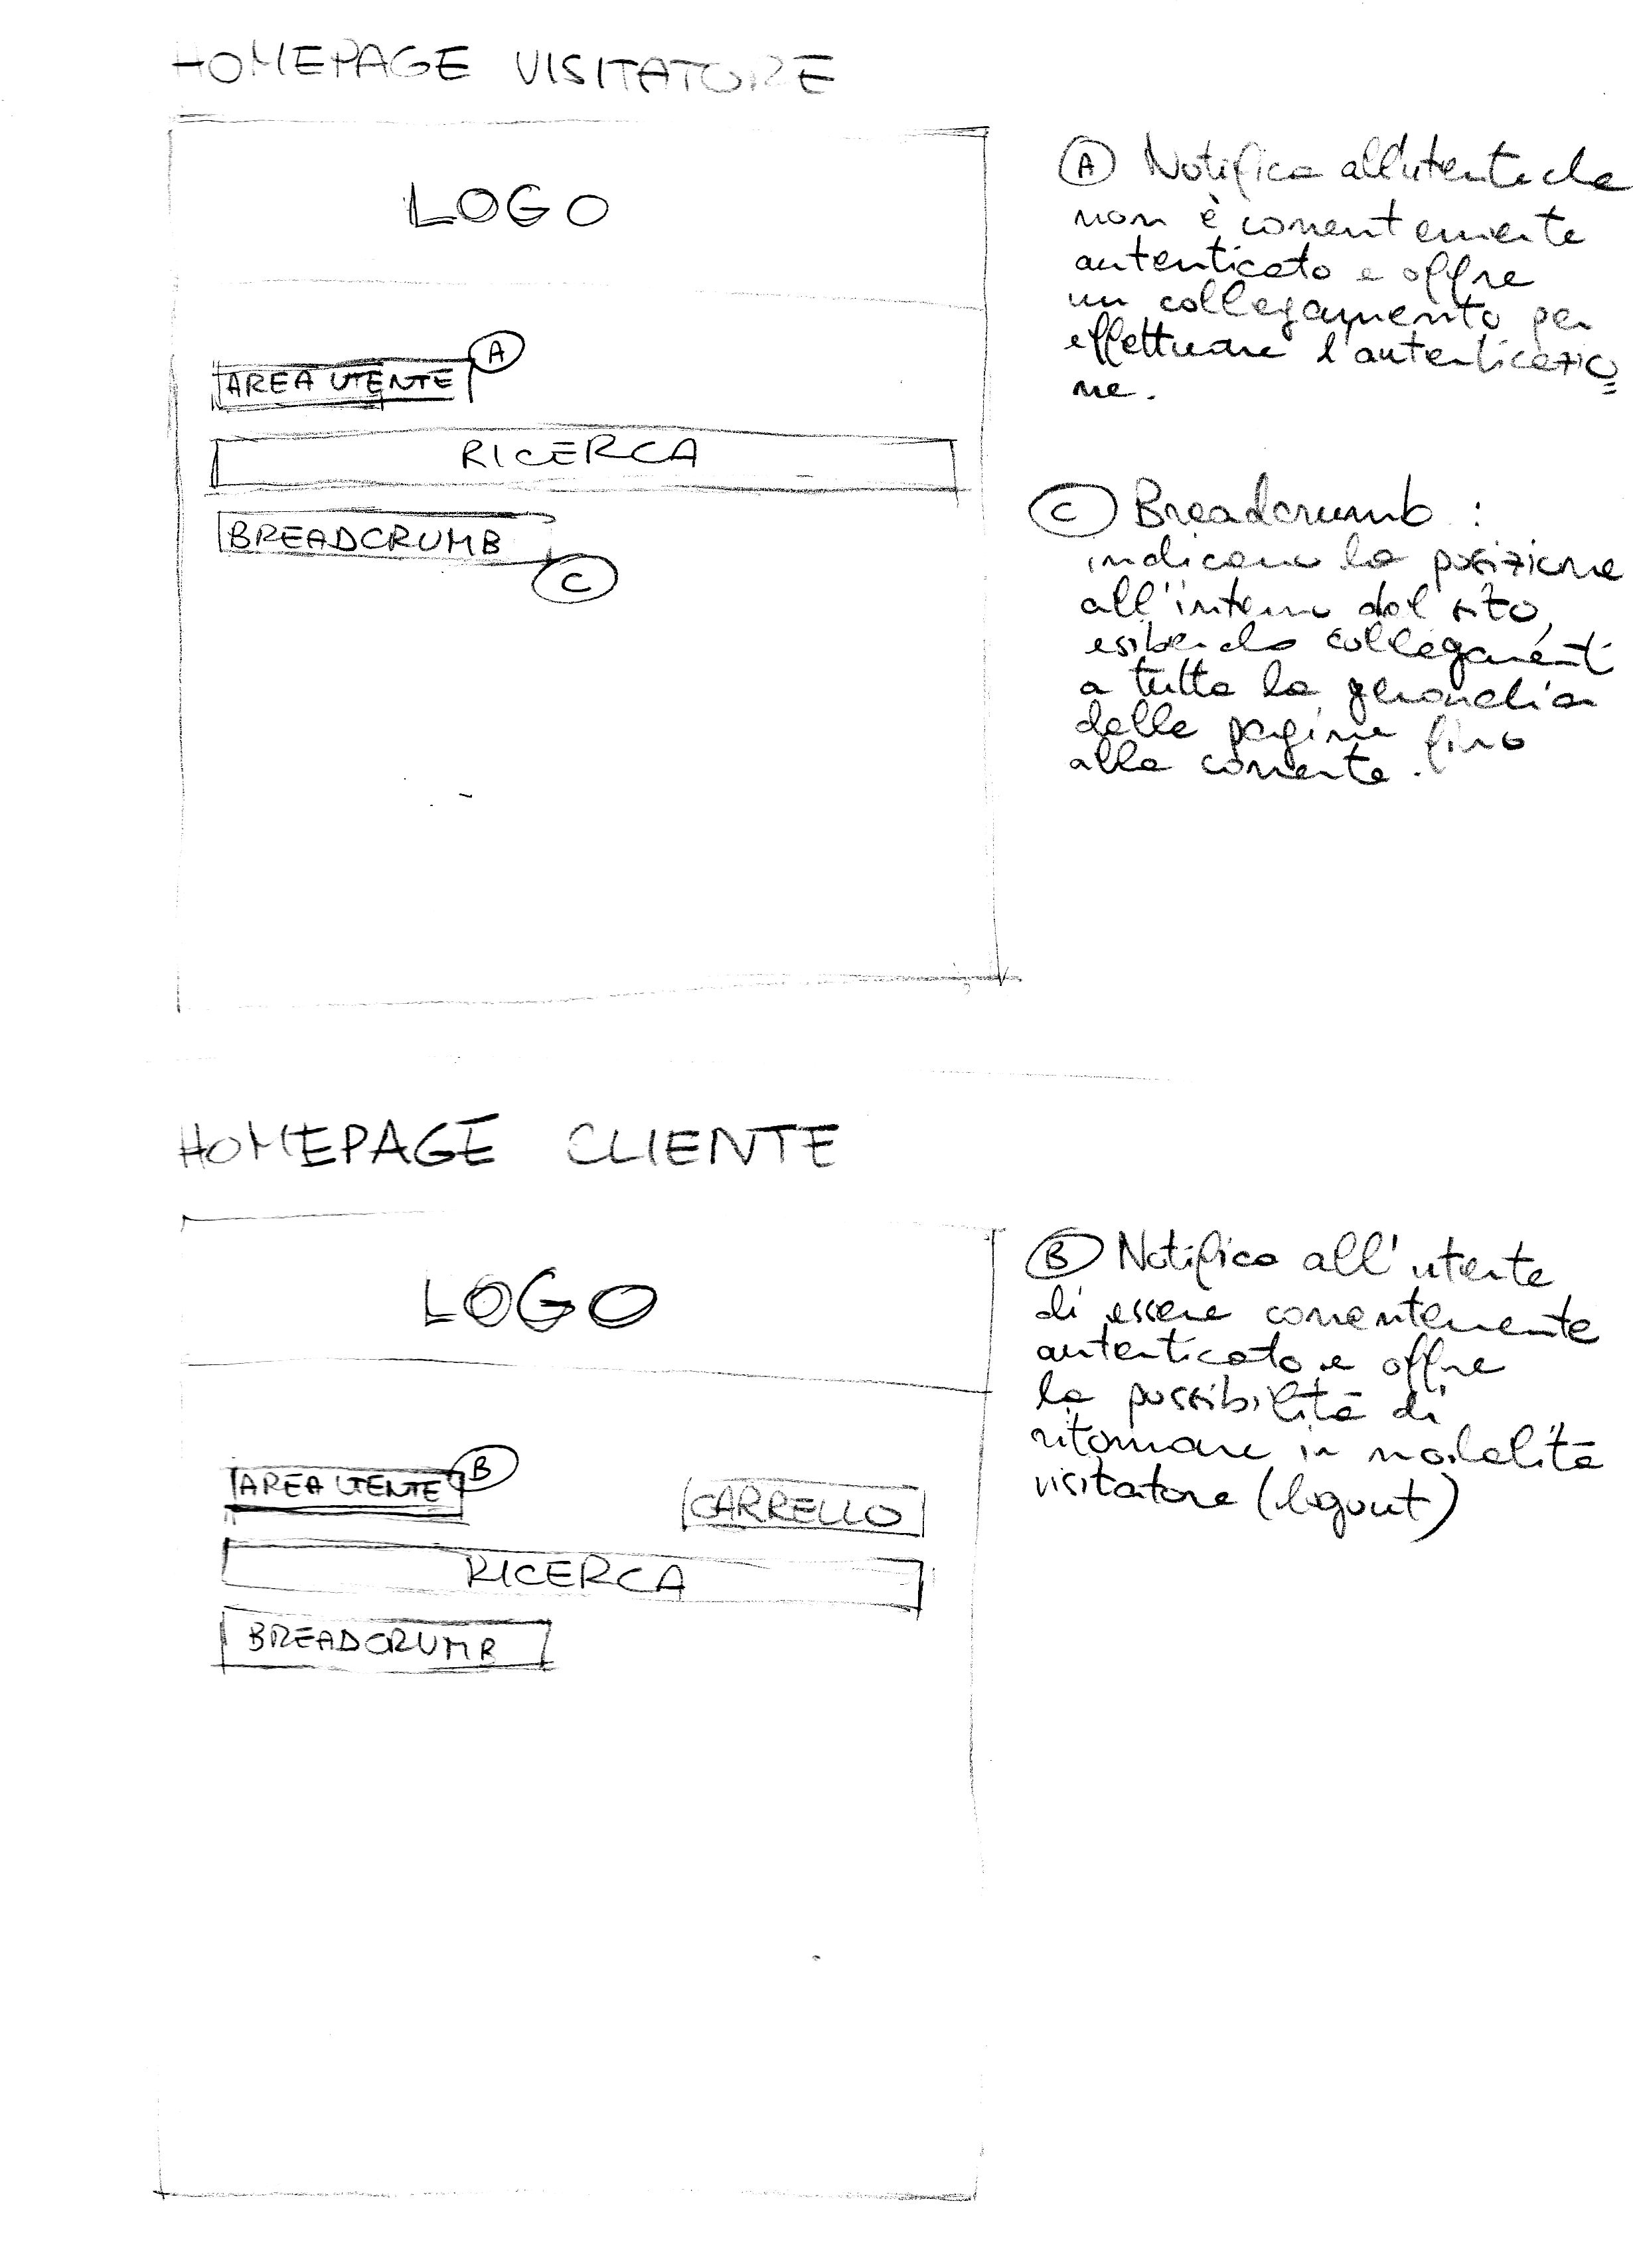 HOMEPAGE VISITATORE
LOGO
A
AREA UTENTE
RICERCA
BREADCRUMB
C
A Notifica all'utente che
non è correntemente
autenticato e offre
un collegamento per
effettuare l'autenticazio
ne.
C Breadcrumb :
indicano la posizione
all'interno del sito,
esibendo collegamenti
a tutta la gerarchia
delle pagine fino
alla corrente.
HOMEPAGE CLIENTE
LOGO
B
AREA UTENTE
CARRELLO
RICERCA
BREADCRUMB
B Notifica all'utente
di essere correntemente
autenticato e offre
la possibilità di
ritornare in modalità
visitatore (logout)